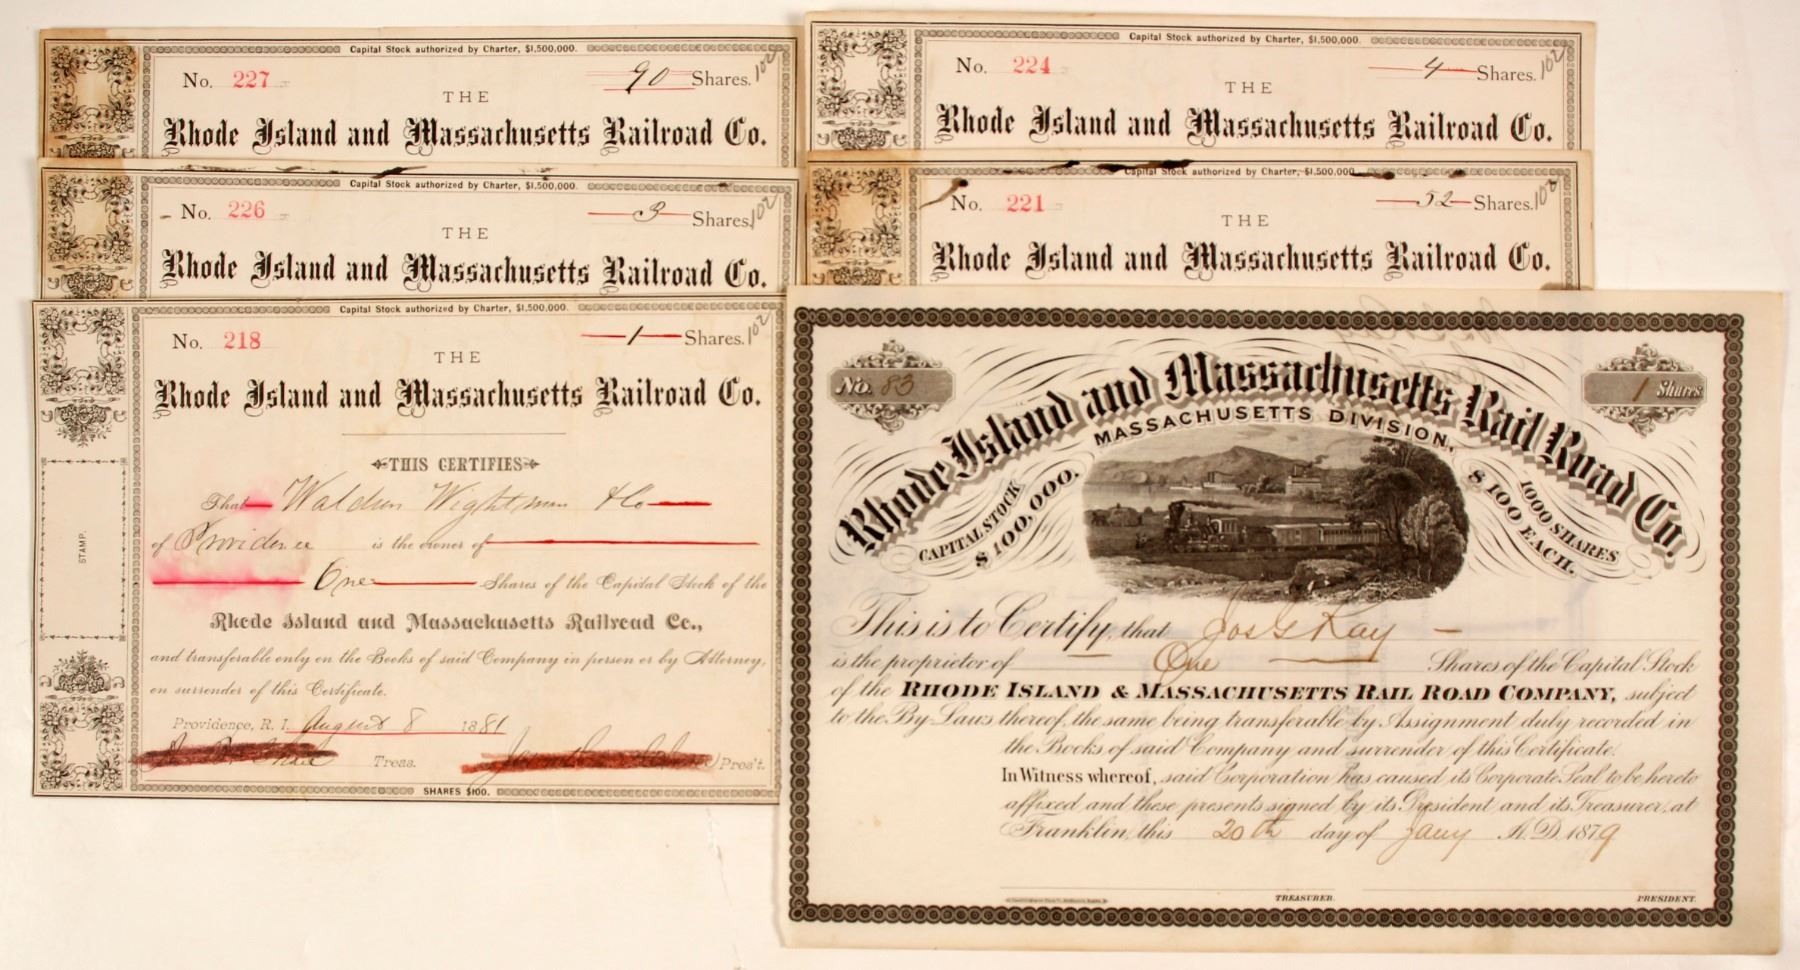 Capital Stock authorized by Charter, $1,500,000.
No. 227 90 Shares. 102
THE
Rhode Island and Massachusetts Railroad Co.
Capital Stock authorized by Charter, $1,500,000.
No. 224 4 Shares. 102
THE
Rhode Island and Massachusetts Railroad Co.
Capital Stock authorized by Charter, $1,500,000.
No. 226 3 Shares. 102
THE
Rhode Island and Massachusetts Railroad Co.
Capital Stock authorized by Charter, $1,500,000.
No. 221 52 Shares. 102
THE
Rhode Island and Massachusetts Railroad Co.
Capital Stock authorized by Charter, $1,500,000.
No. 218 1 Shares. 102
THE
Rhode Island and Massachusetts Railroad Co.
THIS CERTIFIES
That Waldron Wightman & Co
of Providence is the owner of
One Shares of the Capital Stock of the
Rhode Island and Massachusetts Railroad Co.,
and transferable only on the Books of said Company in person or by Attorney,
on surrender of this Certificate.
Providence, R. I. August 8 1881
Treas. Pres't.
SHARES $100.
STAMP.
No. 83 1 Shares
Rhode Island and Massachusetts Rail Road Co.
MASSACHUSETTS DIVISION,
CAPITAL STOCK
$100,000.
1000 SHARES
$100 EACH.
This is to Certify, that Jos G Kay
is the proprietor of One Shares of the Capital Stock
of the RHODE ISLAND & MASSACHUSETTS RAIL ROAD COMPANY, subject
to the By-Laws thereof, the same being transferable by Assignment duly recorded in
the Books of said Company and surrender of this Certificate.
In Witness whereof, said Corporation has caused its Corporate Seal to be hereto
affixed and these presents signed by its President and its Treasurer, at
Franklin, this 20th day of Jany A. D. 1879
TREASURER. PRESIDENT.